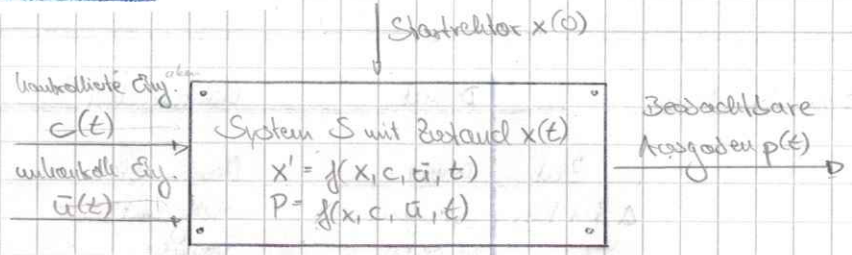 Startvektor x(0)
kontrollierte Eing.
c(t)
unkontroll. Eing.
ū(t)
System S mit Zustand x(t)
x' = f(x, c, ū, t)
P = f(x, c, ū, t)
Beobachtbare
Ausgaben p(t)